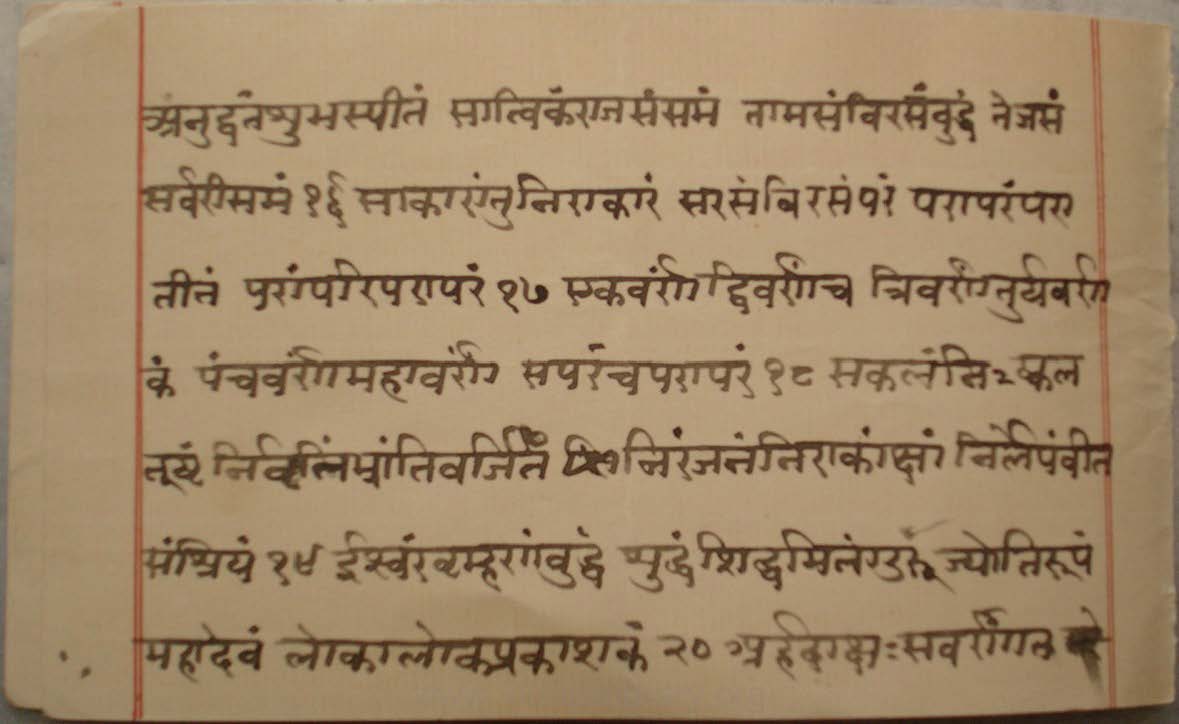 अनुद्वतंशुभस्पीतं सात्विकंराजसंसमं तामसंविरसंवुद्धं तेजसं
सर्वरीसमं १६ साकारंतुनिराकारं सरसंविरसंपरं परापरंपरा
तीतं परंपरिपरापरं १७ एकवर्णं द्विवर्णंच त्रिवर्णंतुर्यवर्ण
कं पंचवर्णंमहावर्णं सपरंचपरापरं १८ सकलंनि कल
निर्वृत्तिंभ्रांतिवर्जितं निरंजनंनिराकांक्षां निर्लेपंवीत
संश्रियं १९ ईस्वरं वुद्धं शुद्धंशिद्धमितंगुरूं ज्योतिरूपं
महादेवं लोकालोकप्रकाशकं २०